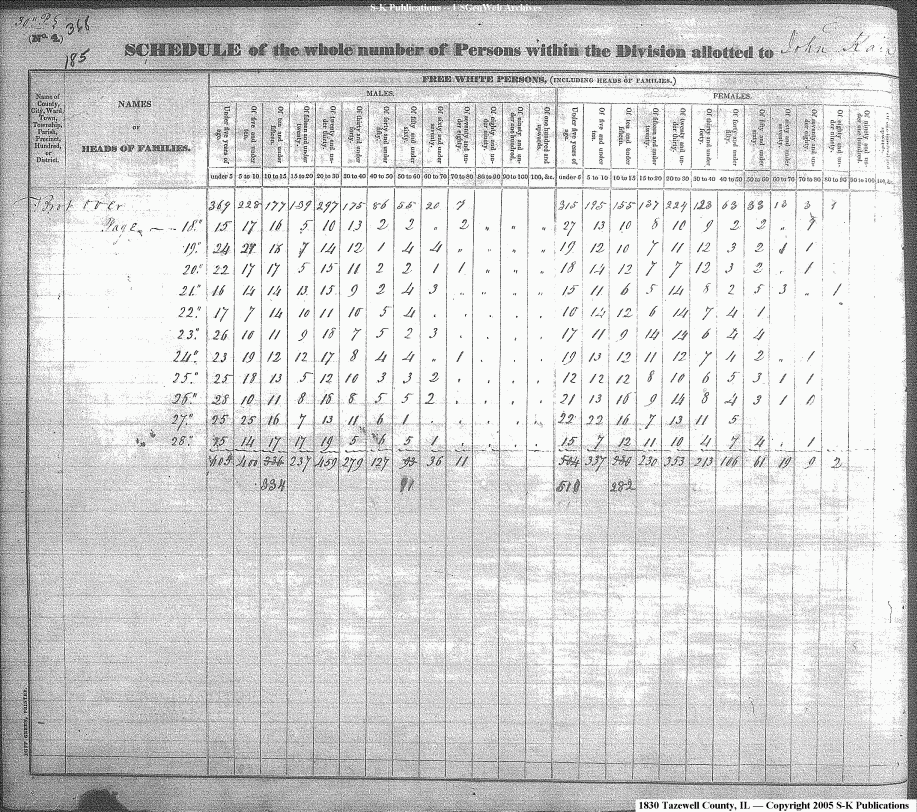 S-K Publications - USGenWeb Archives
366
(No. 4.)
185
SCHEDULE of the whole number of Persons within the Division allotted to John
FREE WHITE PERSONS, (INCLUDING HEADS OF FAMILIES.)
MALES. FEMALES.
Name of County, City, Ward, Town, Township, Parish, Precinct, Hundred, or District.
NAMES
OR
HEADS OF FAMILIES.
Under five years of age. Of five and under ten. Of ten and under fifteen. Of fifteen and under twenty. Of twenty and under thirty. Of thirty and under forty. Of forty and under fifty. Of fifty and under sixty. Of sixty and under seventy. Of seventy and under eighty. Of eighty and under ninety. Of ninety and under one hundred. Of one hundred and upwards. Under five years of age. Of five and under ten. Of ten and under fifteen. Of fifteen and under twenty. Of twenty and under thirty. Of thirty and under forty. Of forty and under fifty. Of fifty and under sixty. Of sixty and under seventy. Of seventy and under eighty. Of eighty and under ninety.
under 5 5 to 10 10 to 15 15 to 20 20 to 30 30 to 40 40 to 50 50 to 60 60 to 70 70 to 80 80 to 90 90 to 100 100, &c. under 5 5 to 10 10 to 15 15 to 20 20 to 30 30 to 40 40 to 50 50 to 60 60 to 70 70 to 80 80 to 90 90 to 100 100, &c.
over 369 228 177 139 297 175 86 55 20 7 315 195 155 137 224 123 63 33 12 3 1
Page 18" 15 17 16 5 10 13 2 2 " 2 " " " 27 13 10 8 10 9 2 2 "
19" 24 15 7 14 12 1 4 4 " " " 19 12 10 7 11 12 3 2 1 1
20" 22 17 17 5 15 11 2 2 1 1 " " " 18 14 12 7 7 12 3 2 . 1
21" 16 14 14 13 15 9 2 4 3 " " " " 15 11 6 5 14 8 2 5 3 " 1
22" 17 7 14 10 11 10 5 4 . . . . . 10 14 12 6 14 7 4 1
23" 26 10 11 9 18 7 5 2 3 . . . . 17 11 9 14 14 6 4 4
24" 23 19 12 12 17 8 4 4 " 1 . . . 19 13 12 11 12 7 4 2 . 1
25" 25 18 13 5 12 10 3 3 2 . . . . 12 12 12 8 10 6 5 3 1 1
26" 28 10 11 8 8 5 5 2 . . . . 21 13 16 9 14 8 4 3 1 0
27" 25 25 16 7 13 11 6 1 . . . . . 22 22 16 7 13 11 5
28" 14 17 17 19 5 6 5 1 . . . . 15 7 12 11 10 4 7 4 . 1
400 336 237 459 279 127 36 11 337 230 353 213 106 61 19 9 2
334 91 510 282
1830 Tazewell County, IL — Copyright 2005 S-K Publications